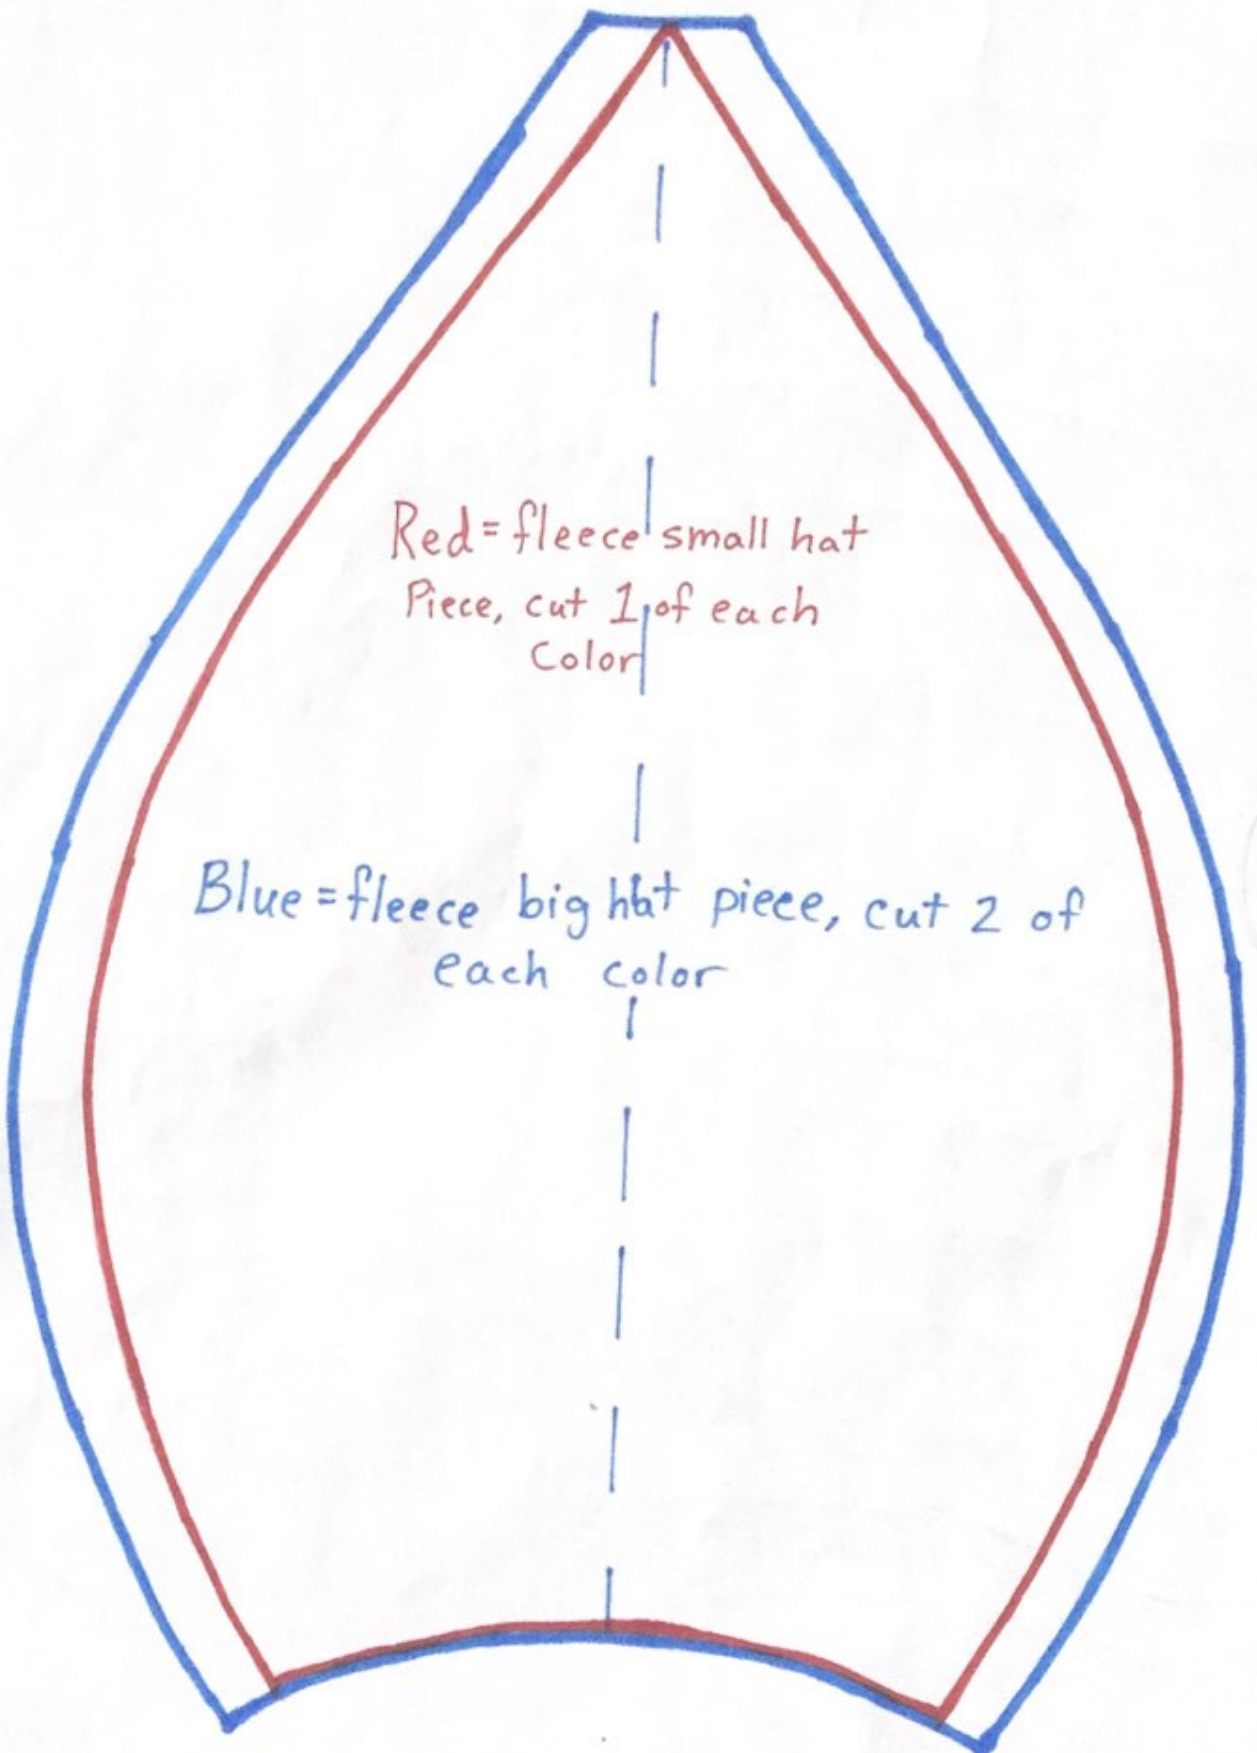 Red = fleece small hat
Piece, cut 1 of each
Color
Blue = fleece big hat piece, cut 2 of
each color